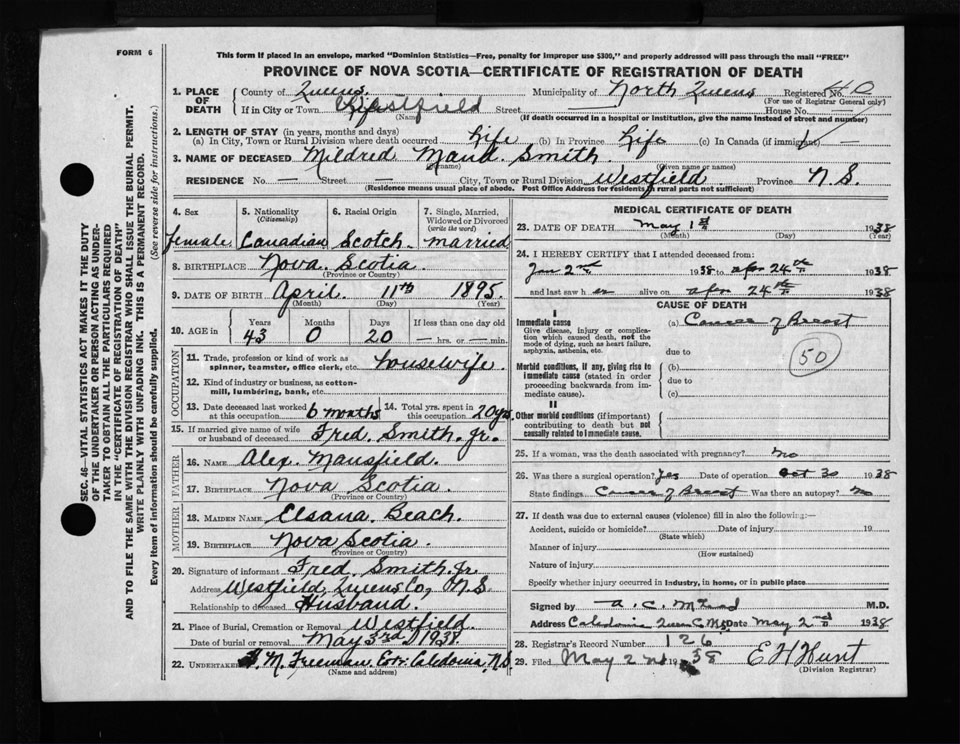 FORM 6
This form if placed in an envelope, marked "Dominion Statistics—Free, penalty for improper use $300," and properly addressed will pass through the mail "FREE"
PROVINCE OF NOVA SCOTIA—CERTIFICATE OF REGISTRATION OF DEATH
1. PLACE OF DEATH County of Queens. Municipality of North Queens Registered No. 40
(For use of Registrar General only)
If in City or Town Westfield Street House No.
(Name) (If death occurred in a hospital or institution, give the name instead of street and number)
2. LENGTH OF STAY (in years, months and days)
(a) In City, Town or Rural Division where death occurred Life (b) In Province Life (c) In Canada (if immigrant)
3. NAME OF DECEASED Mildred Maud Smith.
(Surname) (Given name or names)
RESIDENCE No. — Street — City, Town or Rural Division Westfield. Province N.S.
(Residence means usual place of abode. Post Office Address for residents in rural parts not sufficient)
SEC. 46—VITAL STATISTICS ACT MAKES IT THE DUTY
OF THE UNDERTAKER OR PERSON ACTING AS UNDER-
TAKER TO OBTAIN ALL THE PARTICULARS REQUIRED
IN THE "CERTIFICATE OF REGISTRATION OF DEATH"
AND TO FILE THE SAME WITH THE DIVISION REGISTRAR WHO SHALL ISSUE THE BURIAL PERMIT.
WRITE PLAINLY WITH UNFADING INK. THIS IS A PERMANENT RECORD.
Every item of information should be carefully supplied. (See reverse side for instructions.)
4. Sex 5. Nationality (Citizenship) 6. Racial Origin 7. Single, Married, Widowed or Divorced (write the word)
Female Canadian Scotch married
8. BIRTHPLACE Nova Scotia.
(Province or Country)
9. DATE OF BIRTH April 11th 1895.
(Month) (Day) (Year)
10. AGE in Years Months Days If less than one day old
43 0 20 — hrs. or — min.
OCCUPATION
11. Trade, profession or kind of work as spinner, teamster, office clerk, etc. housewife.
12. Kind of industry or business, as cotton-mill, lumbering, bank, etc.
13. Date deceased last worked at this occupation 6 months 14. Total yrs. spent in this occupation 20 yrs.
15. If married give name of wife or husband of deceased Fred. Smith. Jr.
FATHER
16. NAME Alex. Mansfield.
17. BIRTHPLACE Nova Scotia
(Province or Country)
MOTHER
18. MAIDEN NAME Elsana Beach.
19. BIRTHPLACE Nova Scotia.
(Province or Country)
20. Signature of informant Fred Smith. Jr.
Address Westfield, Queens Co, N.S.
Relationship to deceased Husband.
21. Place of Burial, Cremation or Removal Westfield.
Date of burial or removal May 3rd 1938.
22. UNDERTAKER M. Freeman, Caledonia, N.S.
(Name and address)
MEDICAL CERTIFICATE OF DEATH
23. DATE OF DEATH May 1st 1938
(Month) (Day) (Year)
24. I HEREBY CERTIFY that I attended deceased from:
Jan 2nd 1938 to apr 24th 1938
and last saw her alive on apr 24th 1938
CAUSE OF DEATH
I
Immediate cause (a) Cancer of Breast
Give disease, injury or complica-
tion which caused death, not the
mode of dying, such as heart failure,
asphyxia, asthenia, etc. due to
50
Morbid conditions, if any, giving rise to (b)
immediate cause (stated in order due to
proceeding backwards from im-
mediate cause). (c)
II
Other morbid conditions (if important)
contributing to death but not
causally related to immediate cause.
25. If a woman, was the death associated with pregnancy? no
26. Was there a surgical operation? Yes Date of operation Oct 30 1938
State findings Cancer of Breast Was there an autopsy? No
27. If death was due to external causes (violence) fill in also the following:—
Accident, suicide or homicide? Date of injury 19
(State which)
Manner of injury
(How sustained)
Nature of injury
Specify whether injury occurred in industry, in home, or in public place
Signed by A. C. M. D.
Address Caledonia Queens Co Date May 2nd 1938
28. Registrar's Record Number 126
29. Filed May 2nd 1938 E H Hunt
(Division Registrar)